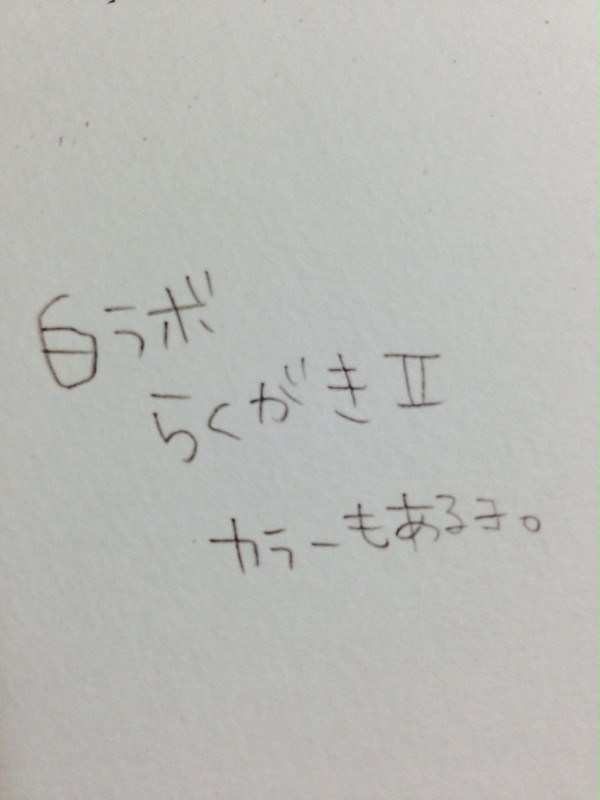 白ラボ
らくがきⅡ
カラーもあるヨ。